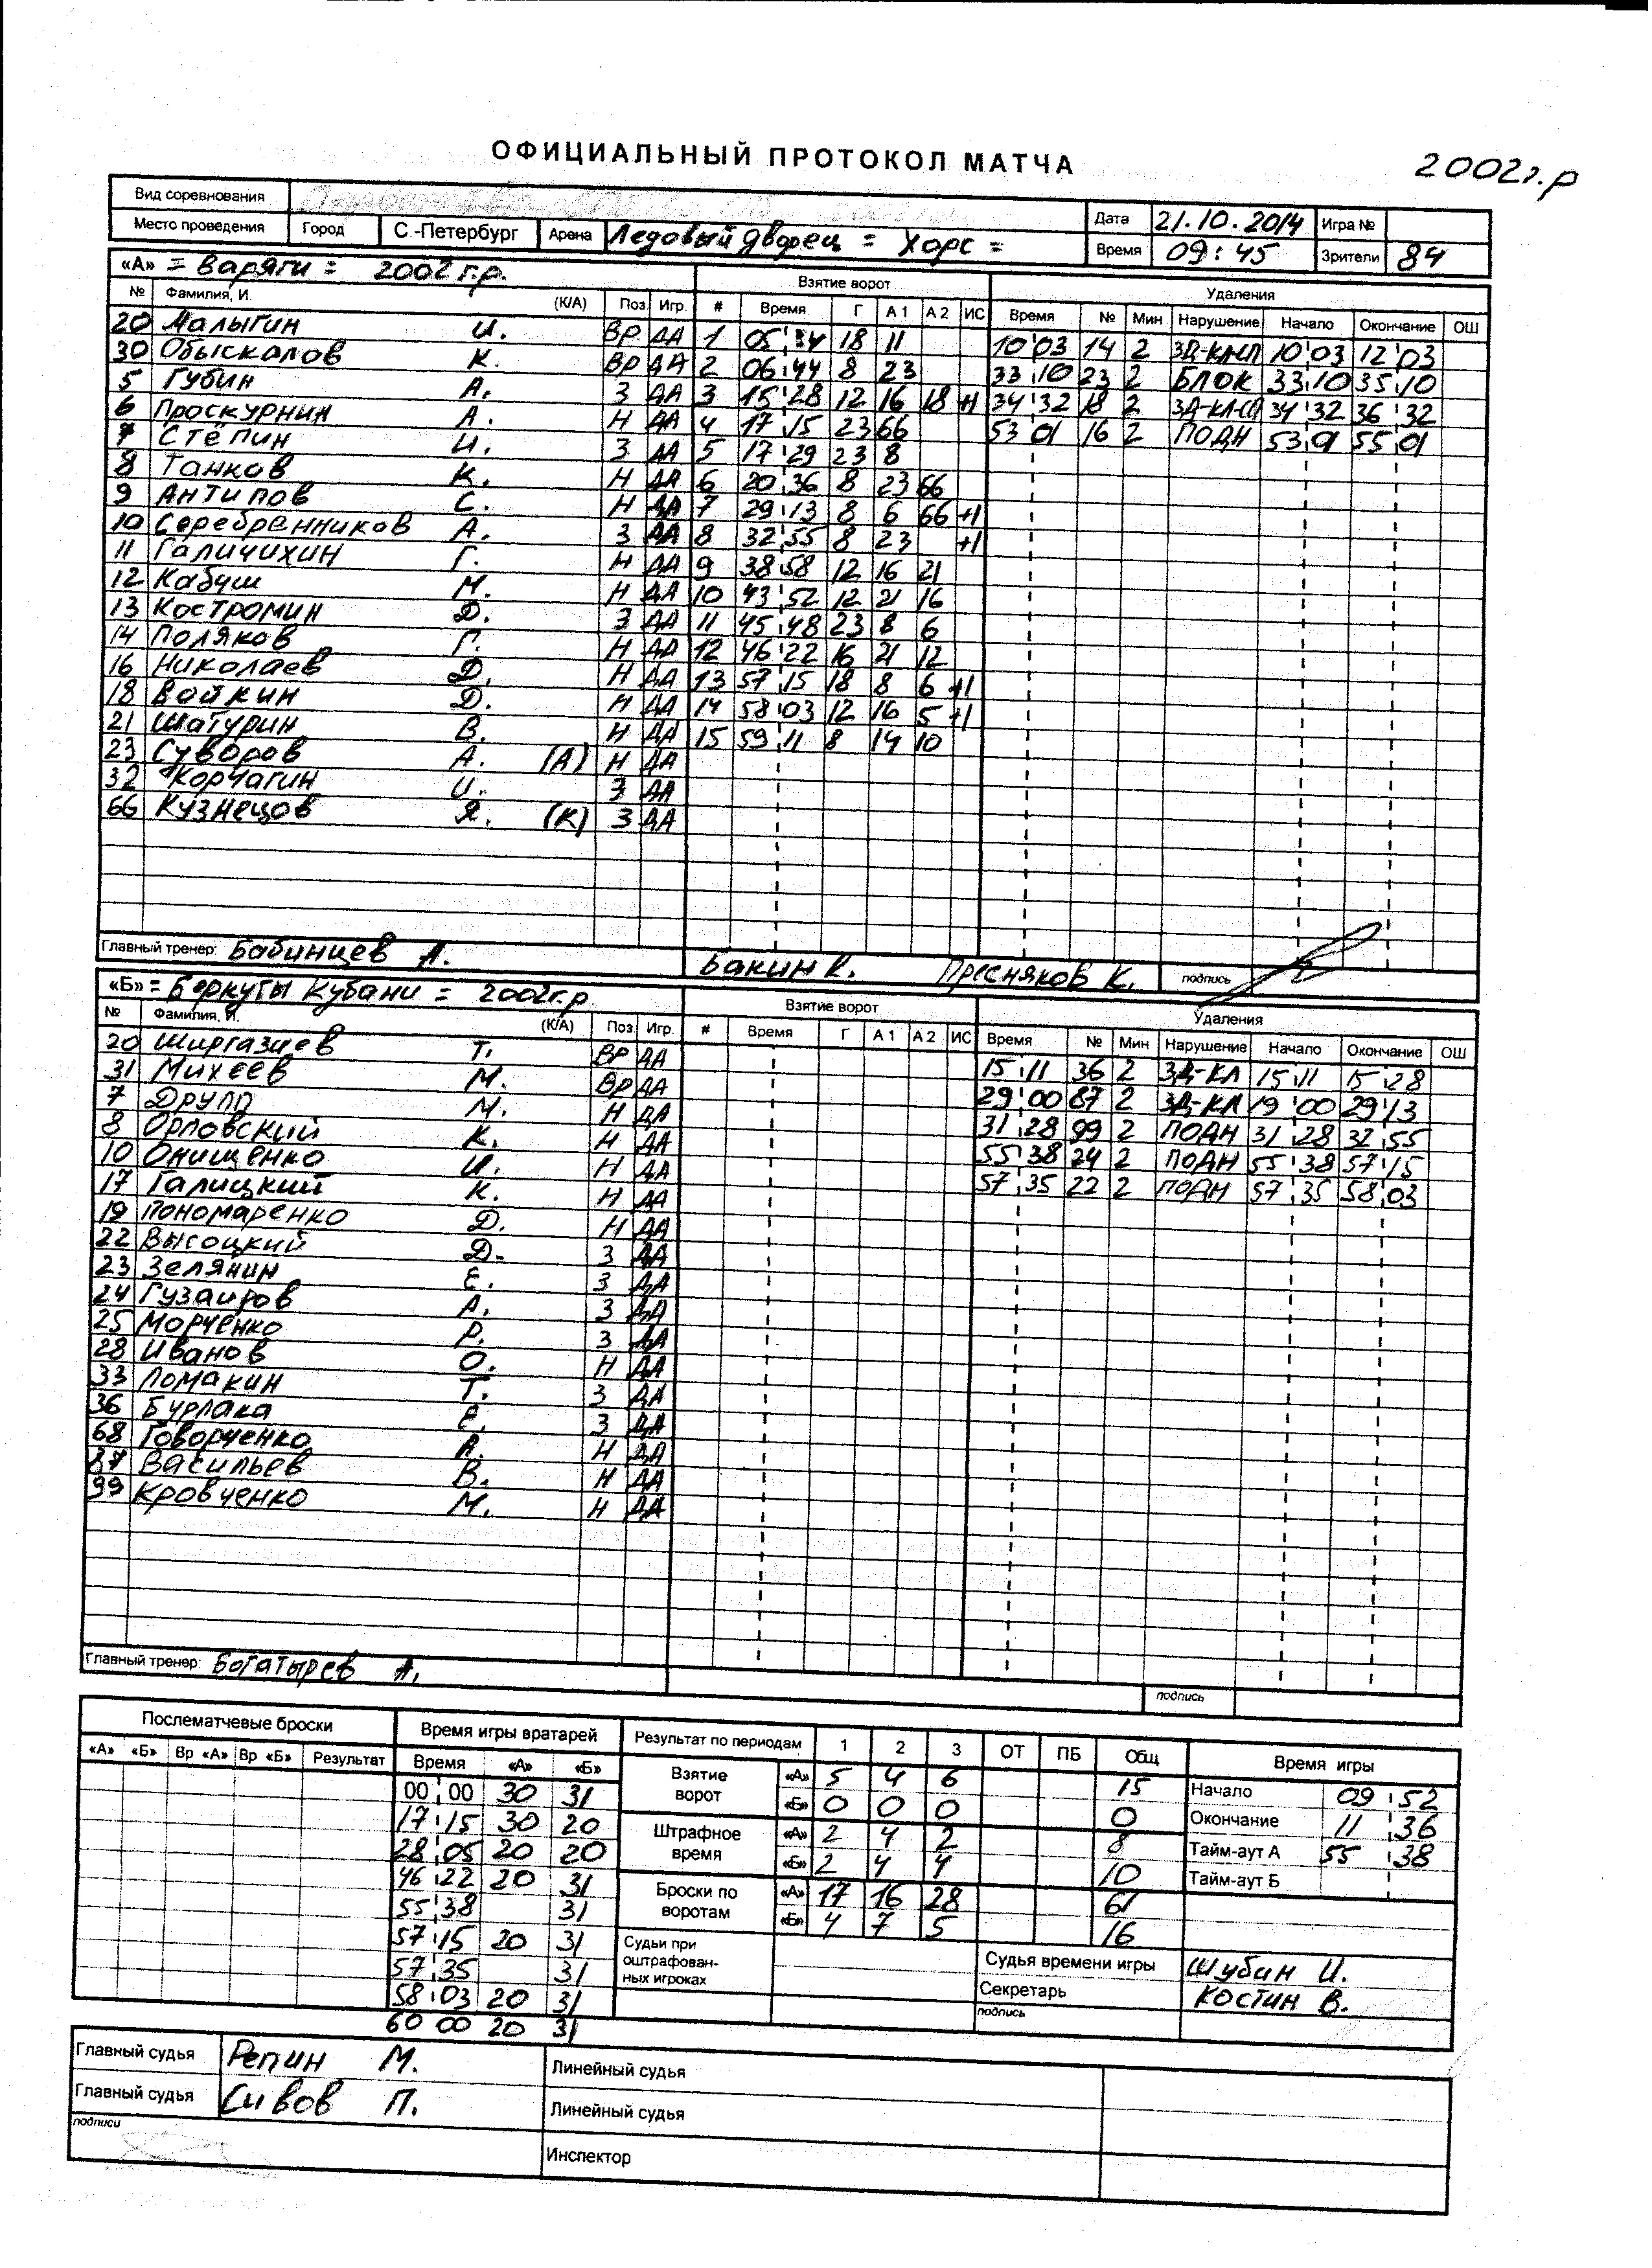 ОФИЦИАЛЬНЫЙ ПРОТОКОЛ МАТЧА
2002г.р
Вид соревнования Дата 21.10.2014 Игра №
Место проведения Город С.-Петербург Арена Ледовый дворец = Хорс = Время 09:45 Зрители 84
«А» = Варяги = 2002 г.р. Взятие ворот Удаления
№ Фамилия, И. (К/А) Поз Игр. # Время Г А1 А2 ИС Время № Мин Нарушение Начало Окончание ОШ
20 Малыгин И. ВР ДА 1 05:34 18 11 10:03 14 2 10:03 12:03
30 Обыскалов К. ВР ДА 2 06:44 8 23 33:10 23 2 БЛОК 33:10 35:10
5 Губин А. З ДА 3 15:28 12 16 18 +1 34:32 18 2 34:32 36:32
6 Проскурнин А. Н ДА 4 17:15 23 66 53:01 16 2 ПОДН 53:01 55:01
7 Стёпин И. З ДА 5 17:29 23 8
8 Танков К. Н ДА 6 20:36 8 23 66
9 Антипов С. Н ДА 7 29:13 8 6 66 +1
10 Серебренников А. З ДА 8 32:55 8 23 +1
11 Галичихин Г. Н ДА 9 38:58 12 16 21
12 Кабуш М. Н ДА 10 43:52 12 21 16
13 Костромин Д. З ДА 11 45:48 23 8 6
14 Поляков Г. Н ДА 12 46:22 16 21 12
16 Николаев Д. Н ДА 13 57:15 18 8 6 +1
18 Войкин Д. Н ДА 14 58:03 12 16 5 +1
21 Шатурин В. Н ДА 15 59:11 8 14 10
23 Суворов А. (А) Н ДА
32 Корчагин И. З ДА
66 Кузнецов Я. (К) З ДА
Главный тренер: Бабинцев А. Бакин К. Пресняков К. подпись
«Б» = Беркуты Кубани = 2002г.р Взятие ворот Удаления
№ Фамилия, И. (К/А) Поз Игр. # Время Г А1 А2 ИС Время № Мин Нарушение Начало Окончание ОШ
20 Ширгазиев Т. ВР ДА 15:11 36 2 ЗД-КЛ 15:11 15:28
31 Михеев М. ВР ДА 29:00 87 2 ЗД-КЛ 19:00 29:13
7 Друпп М. Н ДА 31:28 99 2 ПОДН 31:28 32:55
8 Орловский К. Н ДА 55:38 24 2 ПОДН 55:38 57:15
10 Онищенко И. Н ДА 57:35 22 2 ПОДН 57:35 58:03
17 Галицкий К. Н ДА
19 Пономаренко Д. Н ДА
22 Высоцкий Д. З ДА
23 Зелянин Е. З ДА
24 Гузаиров А. З ДА
25 Морченко Р. З ДА
28 Иванов О. Н ДА
33 Ломакин Т. З ДА
36 Бурлака Е. З ДА
68 Говорченко А. Н ДА
87 Васильев В. Н ДА
99 Кровченко М. Н ДА
Главный тренер: Богатырев А.
подпись
Послематчевые броски Время игры вратарей Результат по периодам 1 2 3 ОТ ПБ Общ Время игры
«А» «Б» Вр «А» Вр «Б» Результат Время «А» «Б»
00:00 30 31 Взятие ворот «А» 5 4 6 15 Начало 09:52
17:15 30 20 «Б» 0 0 0 0 Окончание 11:36
28:05 20 20 Штрафное время «А» 2 4 2 8 Тайм-аут А 55:38
46:22 20 31 «Б» 2 4 4 10 Тайм-аут Б
55:38 31 Броски по воротам «А» 17 16 28 61
57:15 20 31 «Б» 4 7 5 16
57:35 31 Судьи при оштрафованных игроках Судья времени игры Шубин И.
58:03 20 31 Секретарь Костин В.
60 00 20 31 подпись
Главный судья Репин М. Линейный судья
Главный судья Сивов П. Линейный судья
подписи
Инспектор